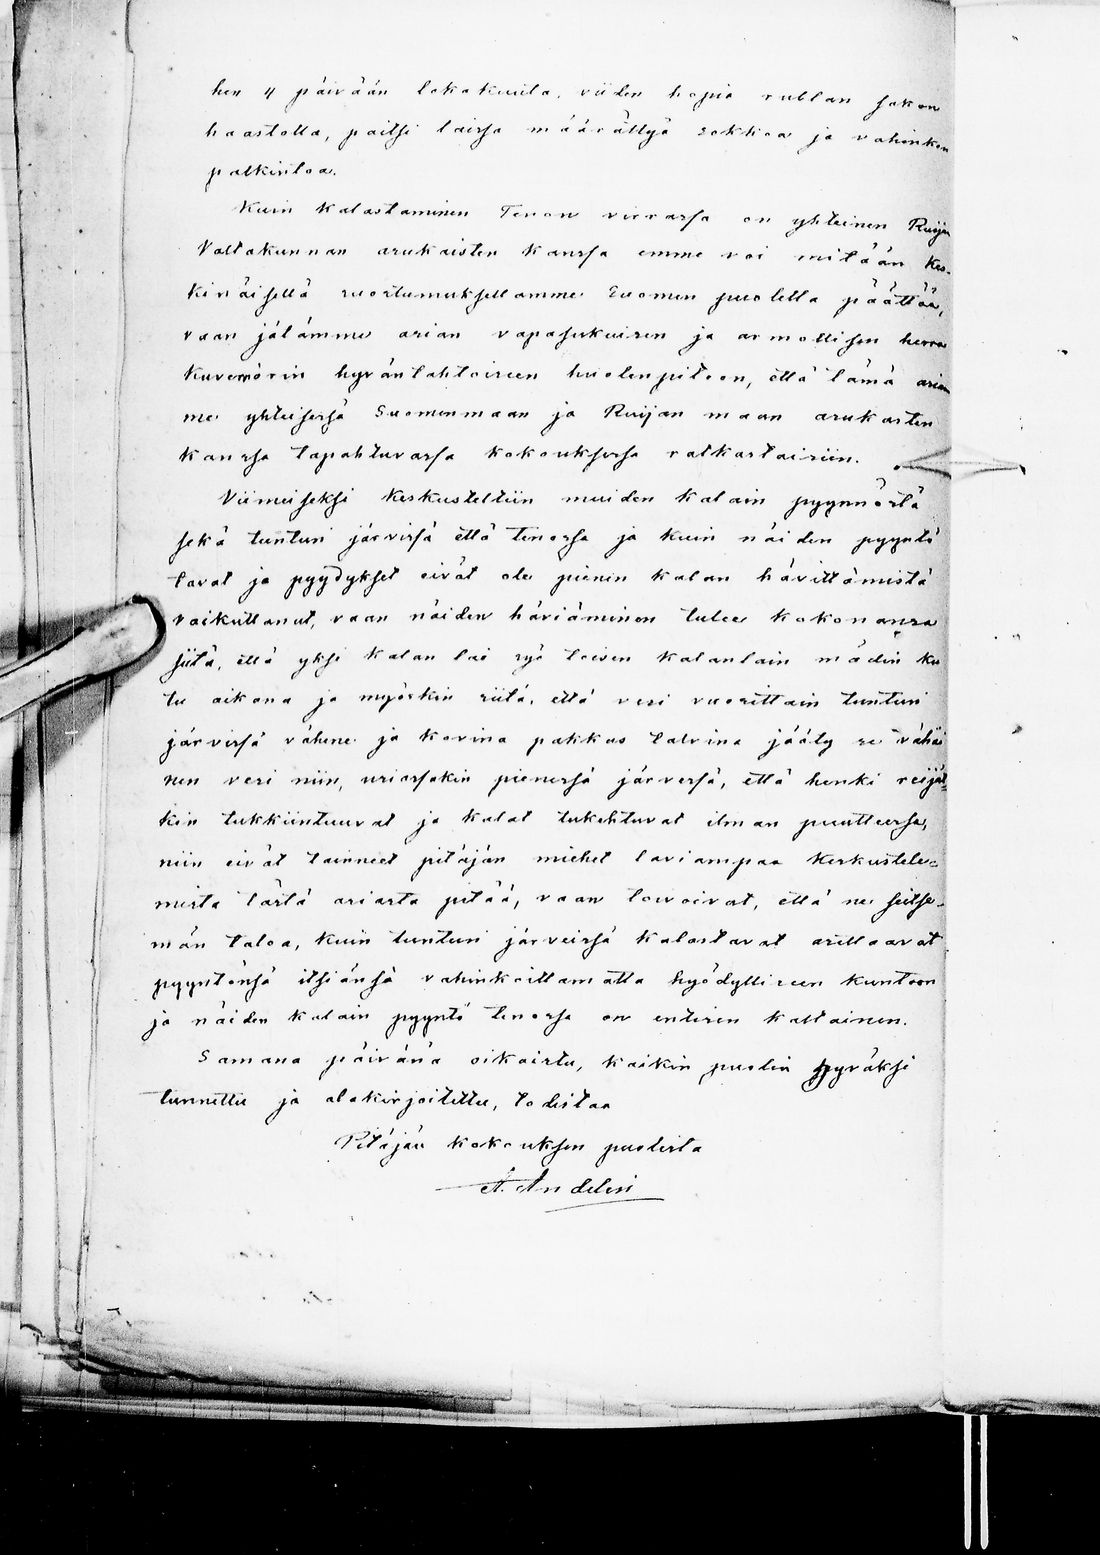 hen 4 päivään lokakuuta, viiden hopia rublan sakon
haastolla, paitsi laissa määrättyä sakkoa ja vahinkon
palkintoa.
Kuin kalastaminen Tenon virrassa on yhteinen Ruijan
Valtakunnan asukaisten kanssa emme voi mitään kes-
kinäisellä suostumuksellamme Suomen puolella päättää,
vaan jätämme asian vapasukuisen ja armollisen herra
Kuvernörin hyväntahtoiseen huolenpitoon, että tämä asia
me yhteisessä Suomenmaan ja Ruijan maan asukasten
kanssa tapahtuvassa kokouksessa ratkastaisiin.
Viimeiseksi keskusteltiin muiden kalain pyynnöstä
sekä tunturi järvissä että tenossa ja kuin näiden pyyntö
tavat ja pyydykset eivät ole pienin kalan hävittämistä
vaikuttanut, vaan näiden häviäminen tulee kokonansa
siitä, että yksi kalan lai syö toisen kalanlain mädin ku
tu aikona ja myöskin siitä, että vesi vuosittain tunturi
järvissä vähene ja kovina pakkas talvina jääty se vähä
nen vesi niin, uriassakin pienessä järvessä, että henki reijät
kin tukkiintuuvat ja kalat tukehtuvat ilman puutteessa,
niin eivät tainneet pitäjän miehet laviampaa keskustele-
mista tästä asiasta pitää, vaan toivoivat, että ne seitse-
män taloa, kuin tunturi järveissä kalastavat asettaavat
pyyntönsä itsiänsä vahinkoittamatta hyödylliseen kuntoon
ja näiden kalain pyyntö tenossa on entisen kaltainen.
Samana päivänä oikaistu, kaikin puolin hyväksi
tunnettu ja alakirjoitettu, todistaa
Pitäjän kokouksen puolesta
A. Andelin